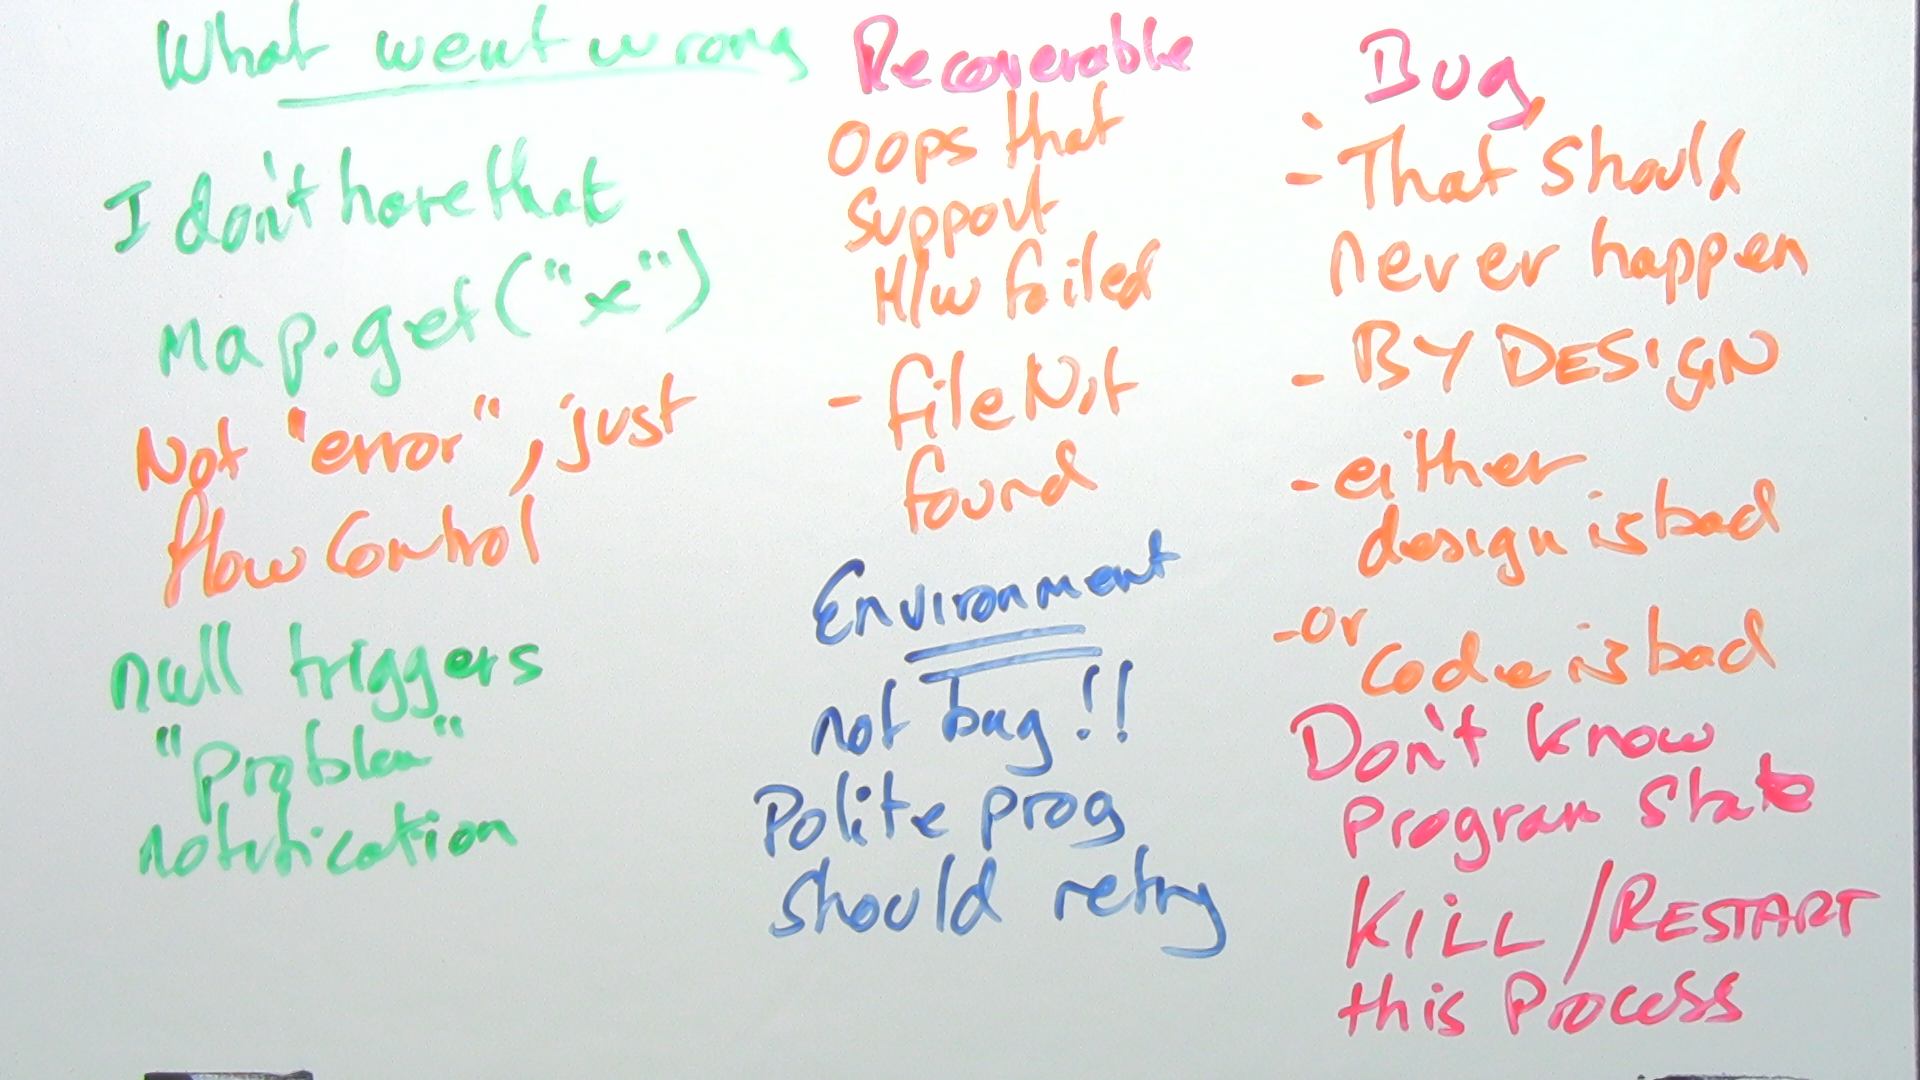 What went wrong
I don't have that
Map.get("x")
Not "error", just
flow control
null triggers
"problem"
notification
Recoverable
Oops that
support
H/w failed
- file Not
found
Environment
not bug!!
Polite prog
should retry
Bug
- That should
never happen
- BY DESIGN
- either
design is bad
- or
code is bad
Don't know
program state
KILL/RESTART
this Process